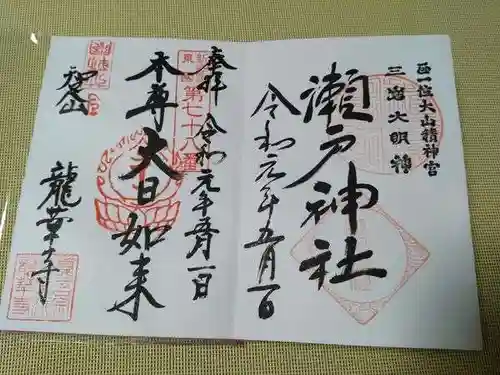 正一位大山積神宮
三島大明神
瀬戸神社
令和元年五月一日
奉拝 令和元年五月一日
第七十八番
本尊大日如来
龍華寺